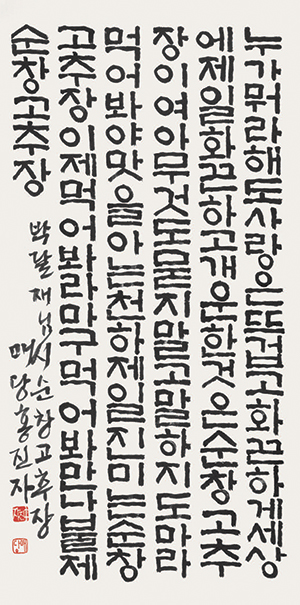 누가뭐라해도사랑은뜨겁고화끈하게세상
에제일화끈하고개운한것은순창고추
장이여아무것도묻지말고말하지도마라
먹어봐야맛을아는천하제일진미는순창
고추장이제먹어봐라마구먹어봐만나불제
순창고추장
박달재님시순창고추장
매당홍진자